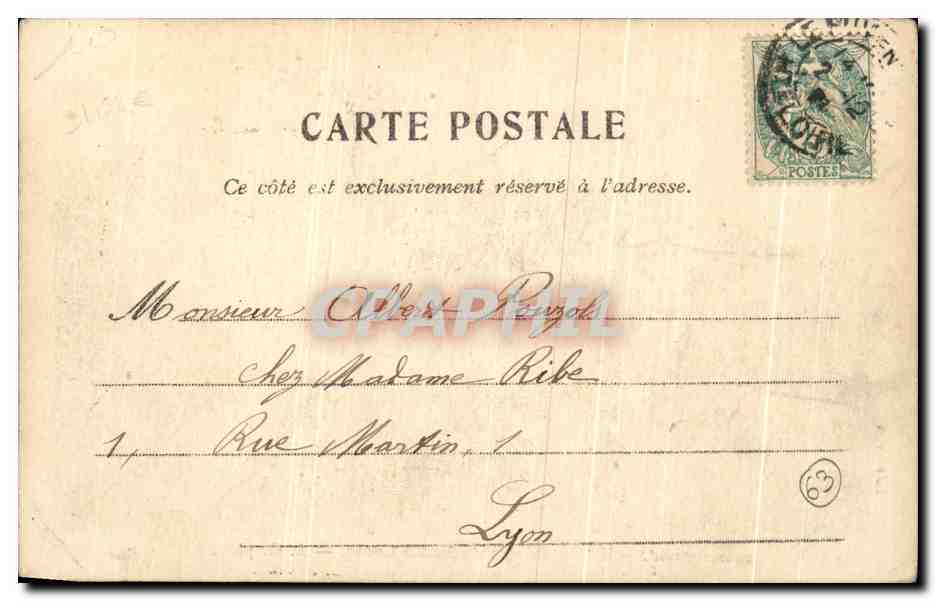 CARTE POSTALE
Ce côté est exclusivement réservé à l'adresse.
POSTES
LOIRE
Monsieur Albert Pouzols
CPAPHIL
chez Madame Ribe
1, Rue Martin, 1
Lyon
63